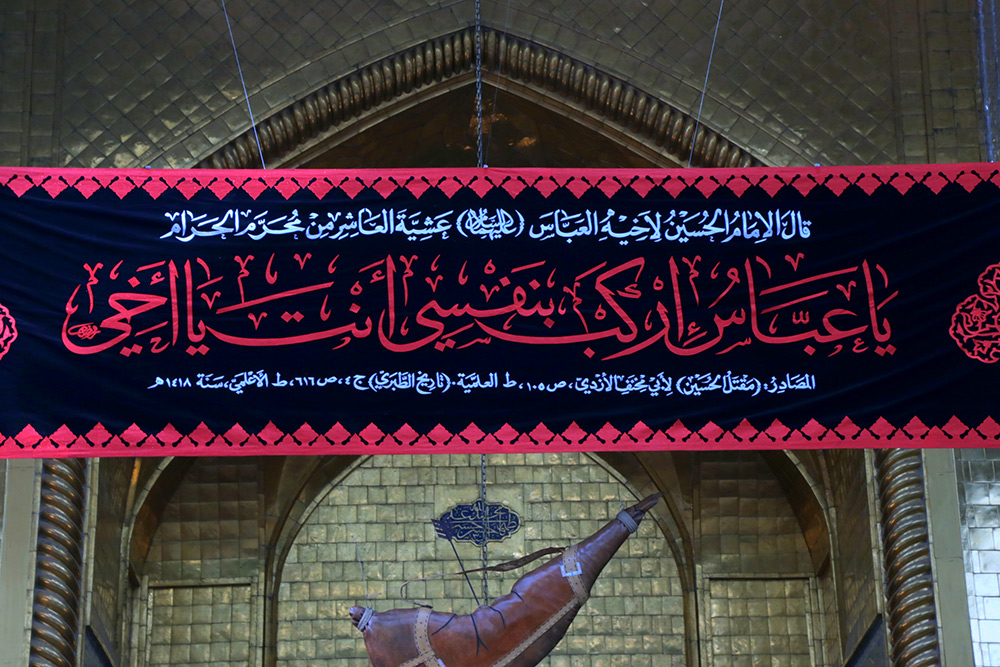 قَالَ الإِمَامُ الحُسَيْنُ لِأَخِيْهِ العَبَّاسِ (عليهما السلام) عَشِيَّةَ العَاشِرِ مِنْ مُحَرَّمِ الحَرَامِ
يَا عَبَّاسُ اِرْكَبْ بِنَفْسِي أَنْتَ يَا أَخِي
المَصَادِرُ: (مَقْتَلُ الحُسَيْنِ) لِأَبِي مِخْنَفِ الأَزْدِيِّ، ص١٠٥، ط العلميّة - (تَارِيخُ الطَّبَرِي) ج٤، ص٦١٦، ط الأَعْلَمِيّ، سَنَة ١٤١٨هـ